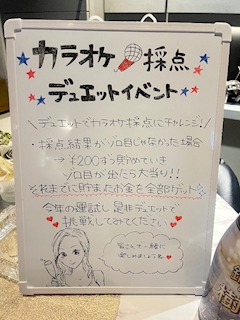 カラオケ採点
デュエットイベント
\デュエットでカラオケ採点にチャレンジ!/
・採点結果がゾロ目じゃなかった場合
→¥200ずつ貯めていき
ゾロ目が出たら大当り!!
それまでに貯まったお金を全部ゲット
今年の運試し是非デュエットで
挑戦してみてください
皆さんで一緒に
楽しみましょう